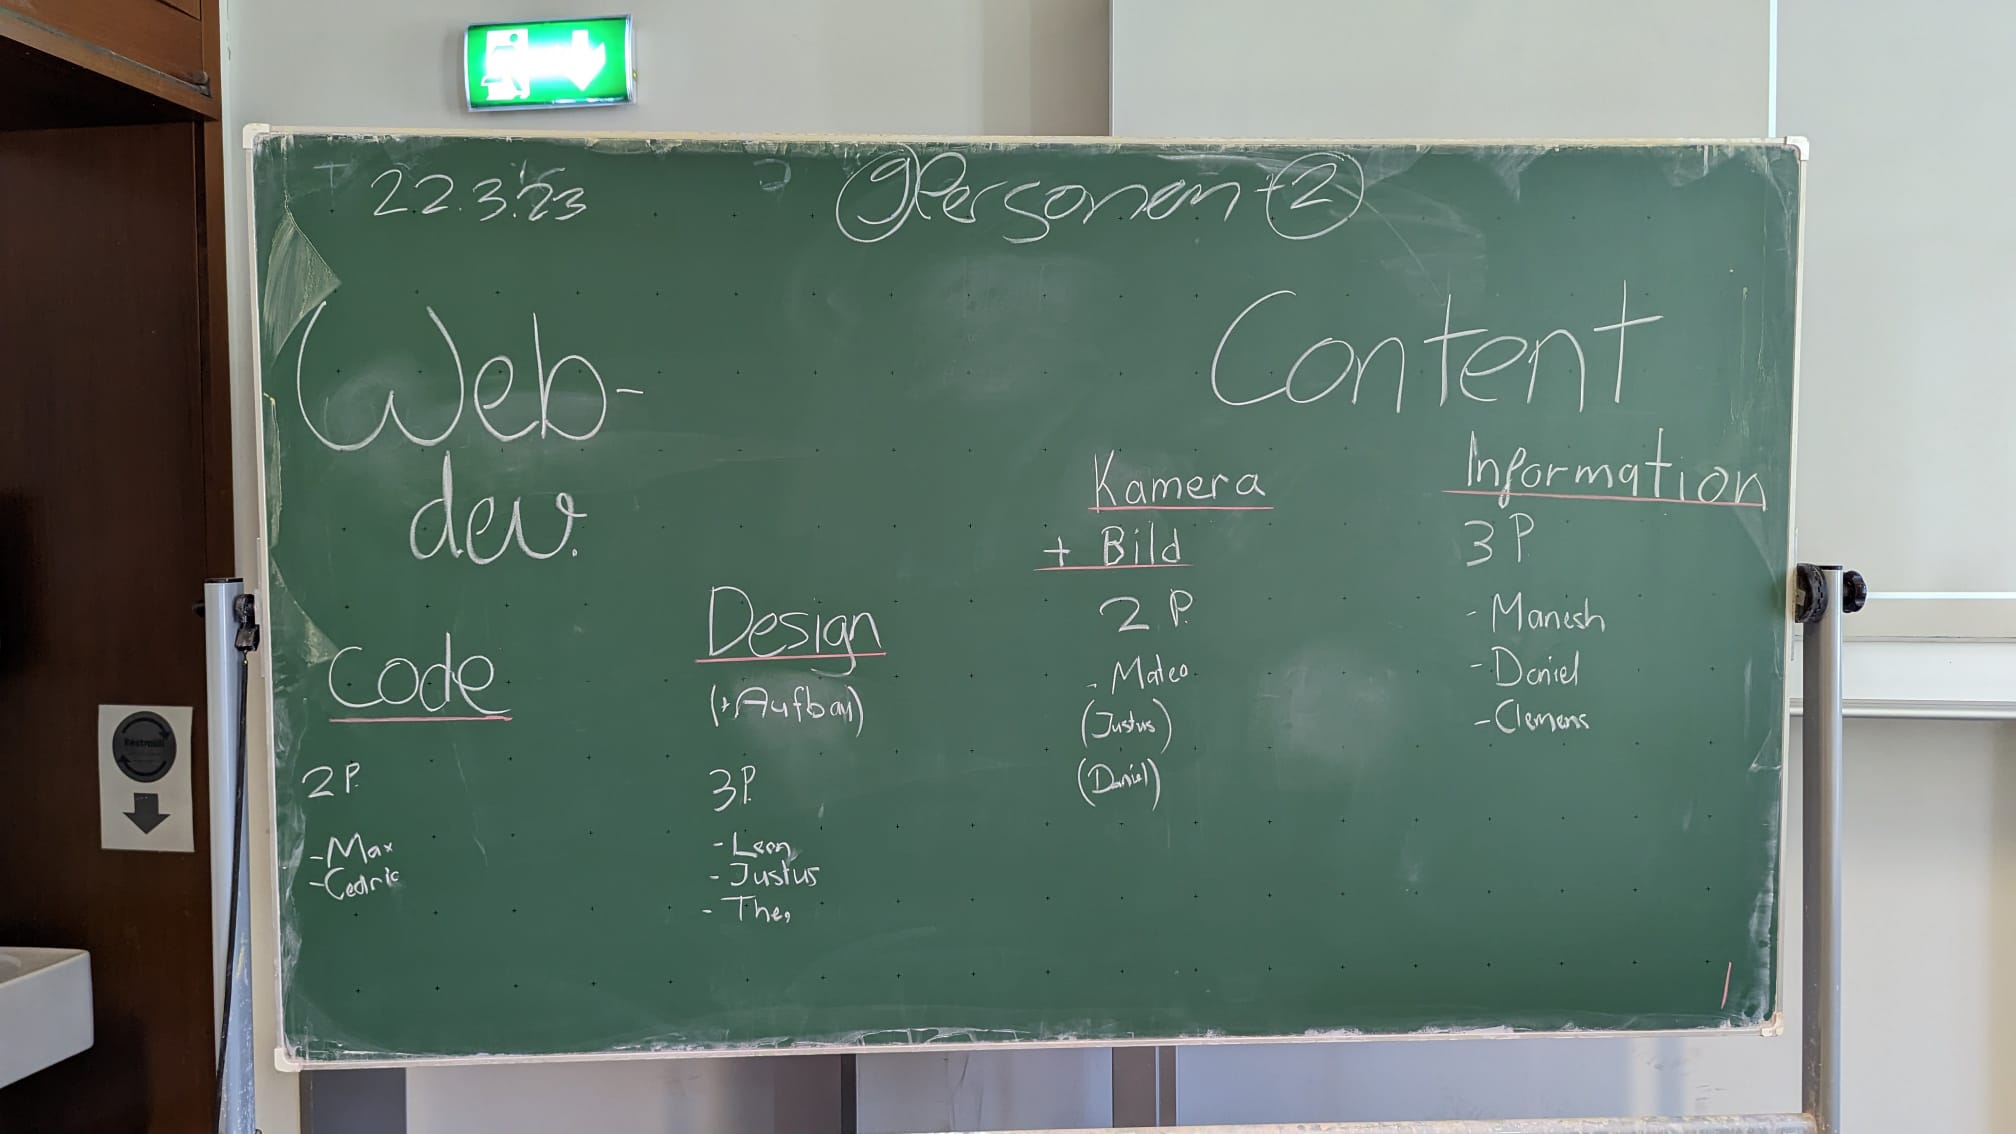 22.3.'23
9 Personen + 2
Web-
dev.
Content
Code
2 P.
- Max
- Cedric
Design
(+Aufbau)
3P.
- Leon
- Justus
- Theo
Kamera
+ Bild
2 P.
- Mateo
(Justus)
(Daniel)
Information
3 P.
- Manesh
- Daniel
- Clemens
Restmüll